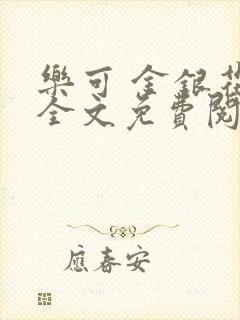 樂可 金銀花
全文免費閱
應春安